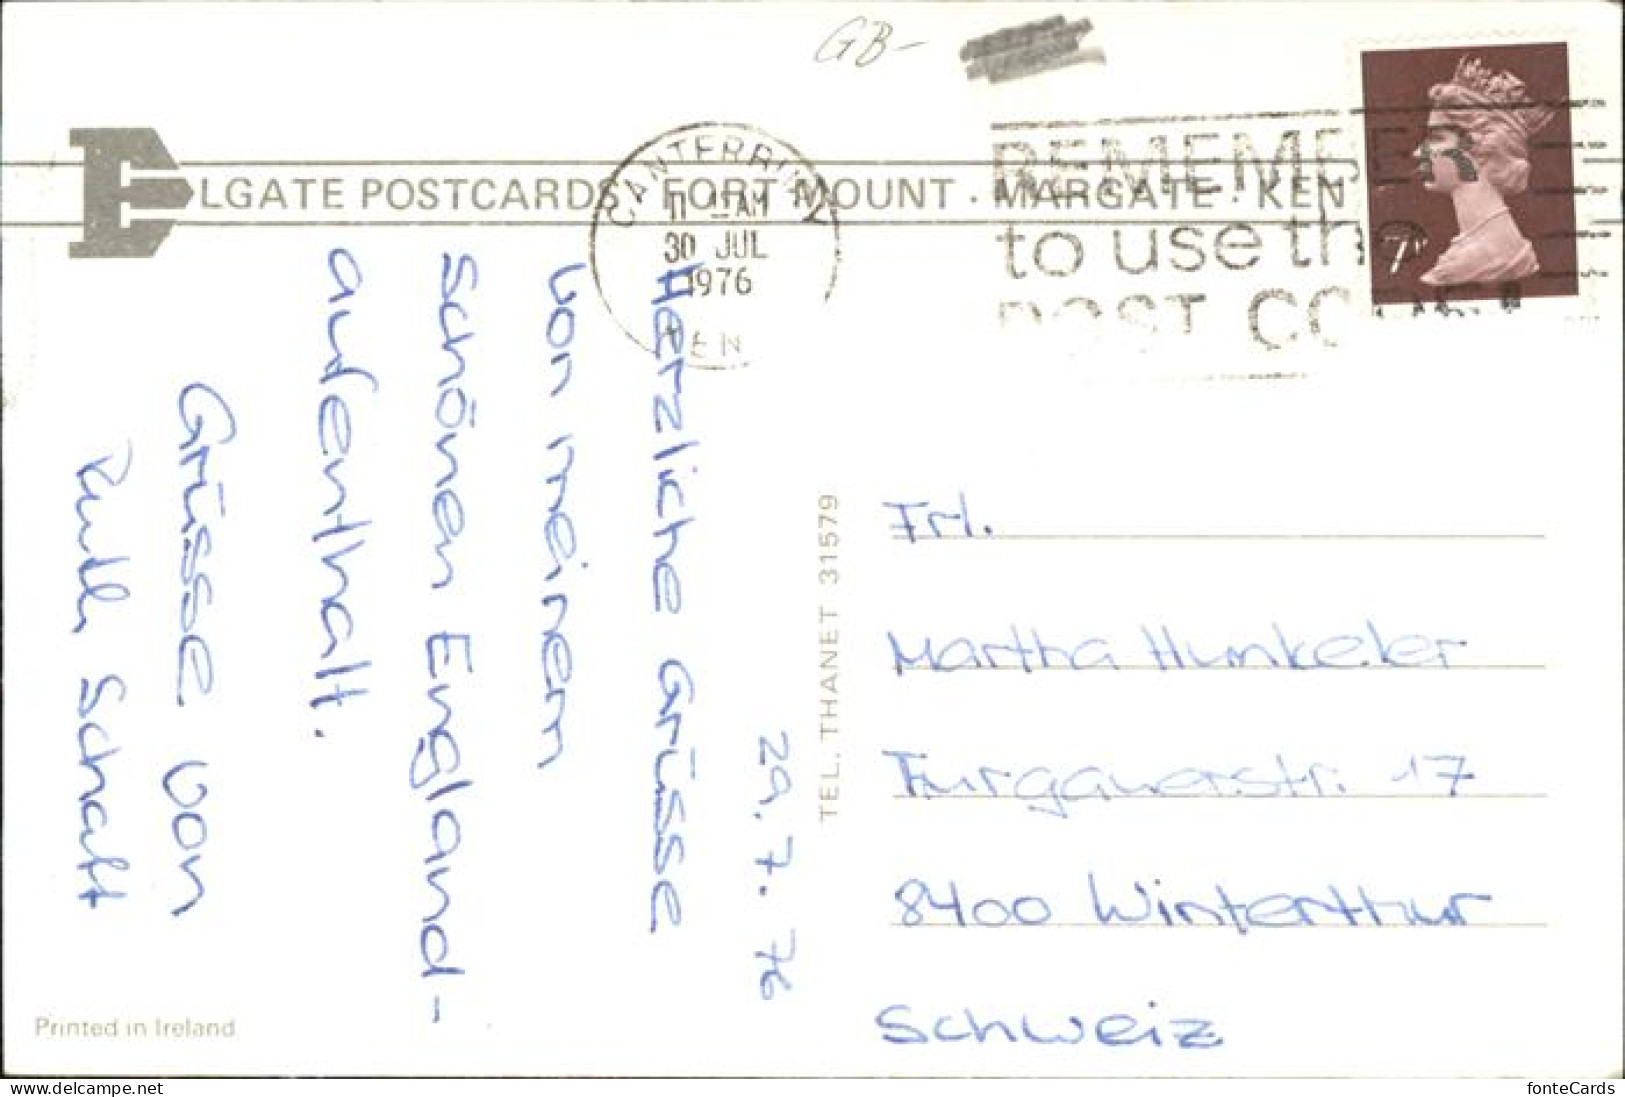 GB-
ELGATE POSTCARDS · FORT MOUNT · MARGATE · KEN
CANTERBURY
11 AM
30 JUL
1976
KEN
REMEMBER
to use the
POST CODE
7P
29. 7. 76
Herzliche Grüsse
von meinem
schönen England-
aufenthalt.
Grüsse von
Ruth Schaft
TEL. THANET 31579
Frl.
Martha Hunkeler
Turgauerstr. 17
8400 Winterthur
Schweiz
Printed in Ireland
delcampe.net
fonteCards